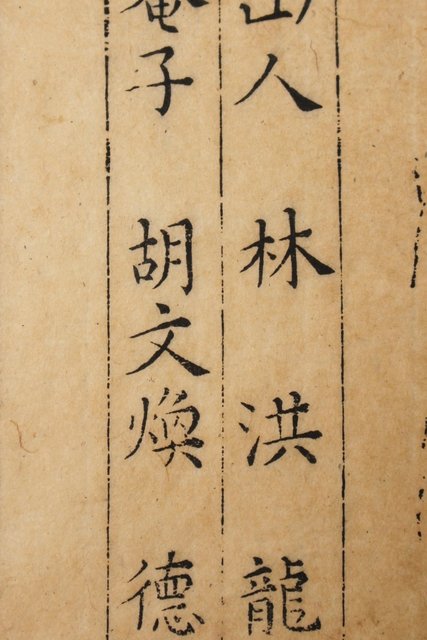 山人 林洪龍
菴子 胡文煥德